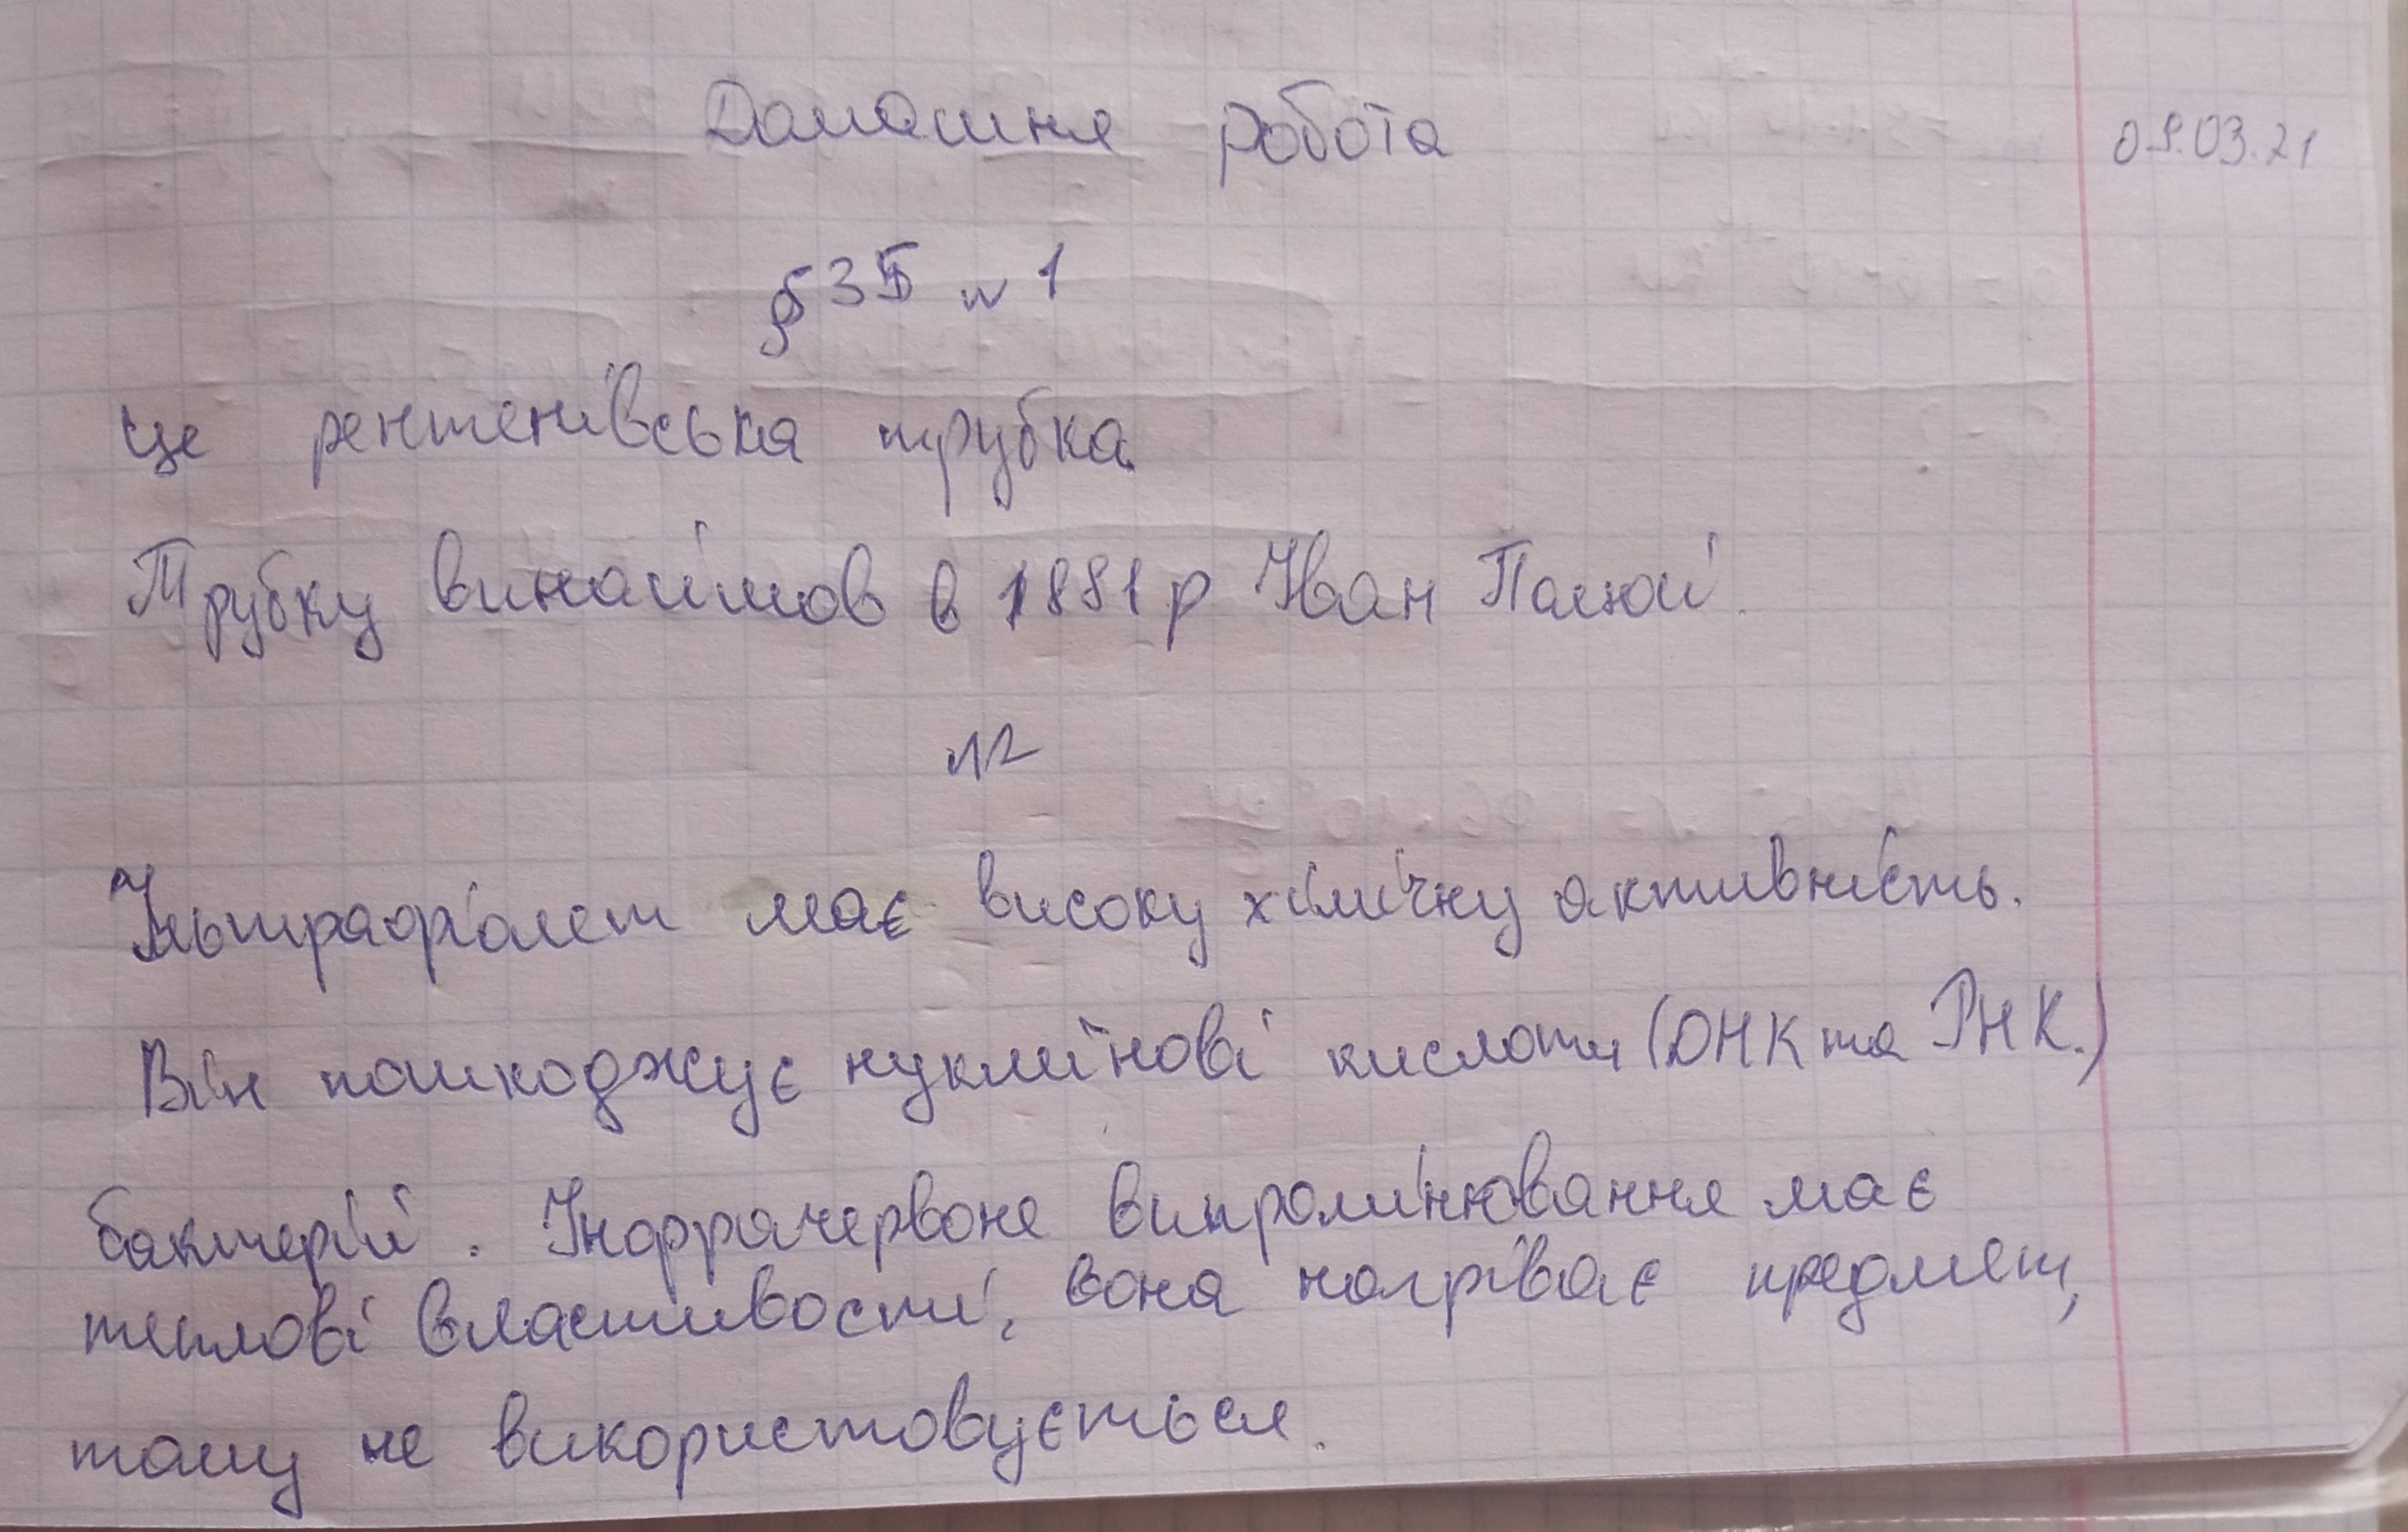 Домашня робота
09.03.21
§35 №1
Це рентгенівська трубка.
Трубку винайшов в 1881р Іван Пулюй.
№2
Ультрафіолет має високу хімічну активність.
Він пошкоджує нуклеїнові кислоти (ДНК та РНК.)
бактерій. Інфрачервоне випромінювання має
теплові властивості, вона нагріває предмет,
тому не використовується.